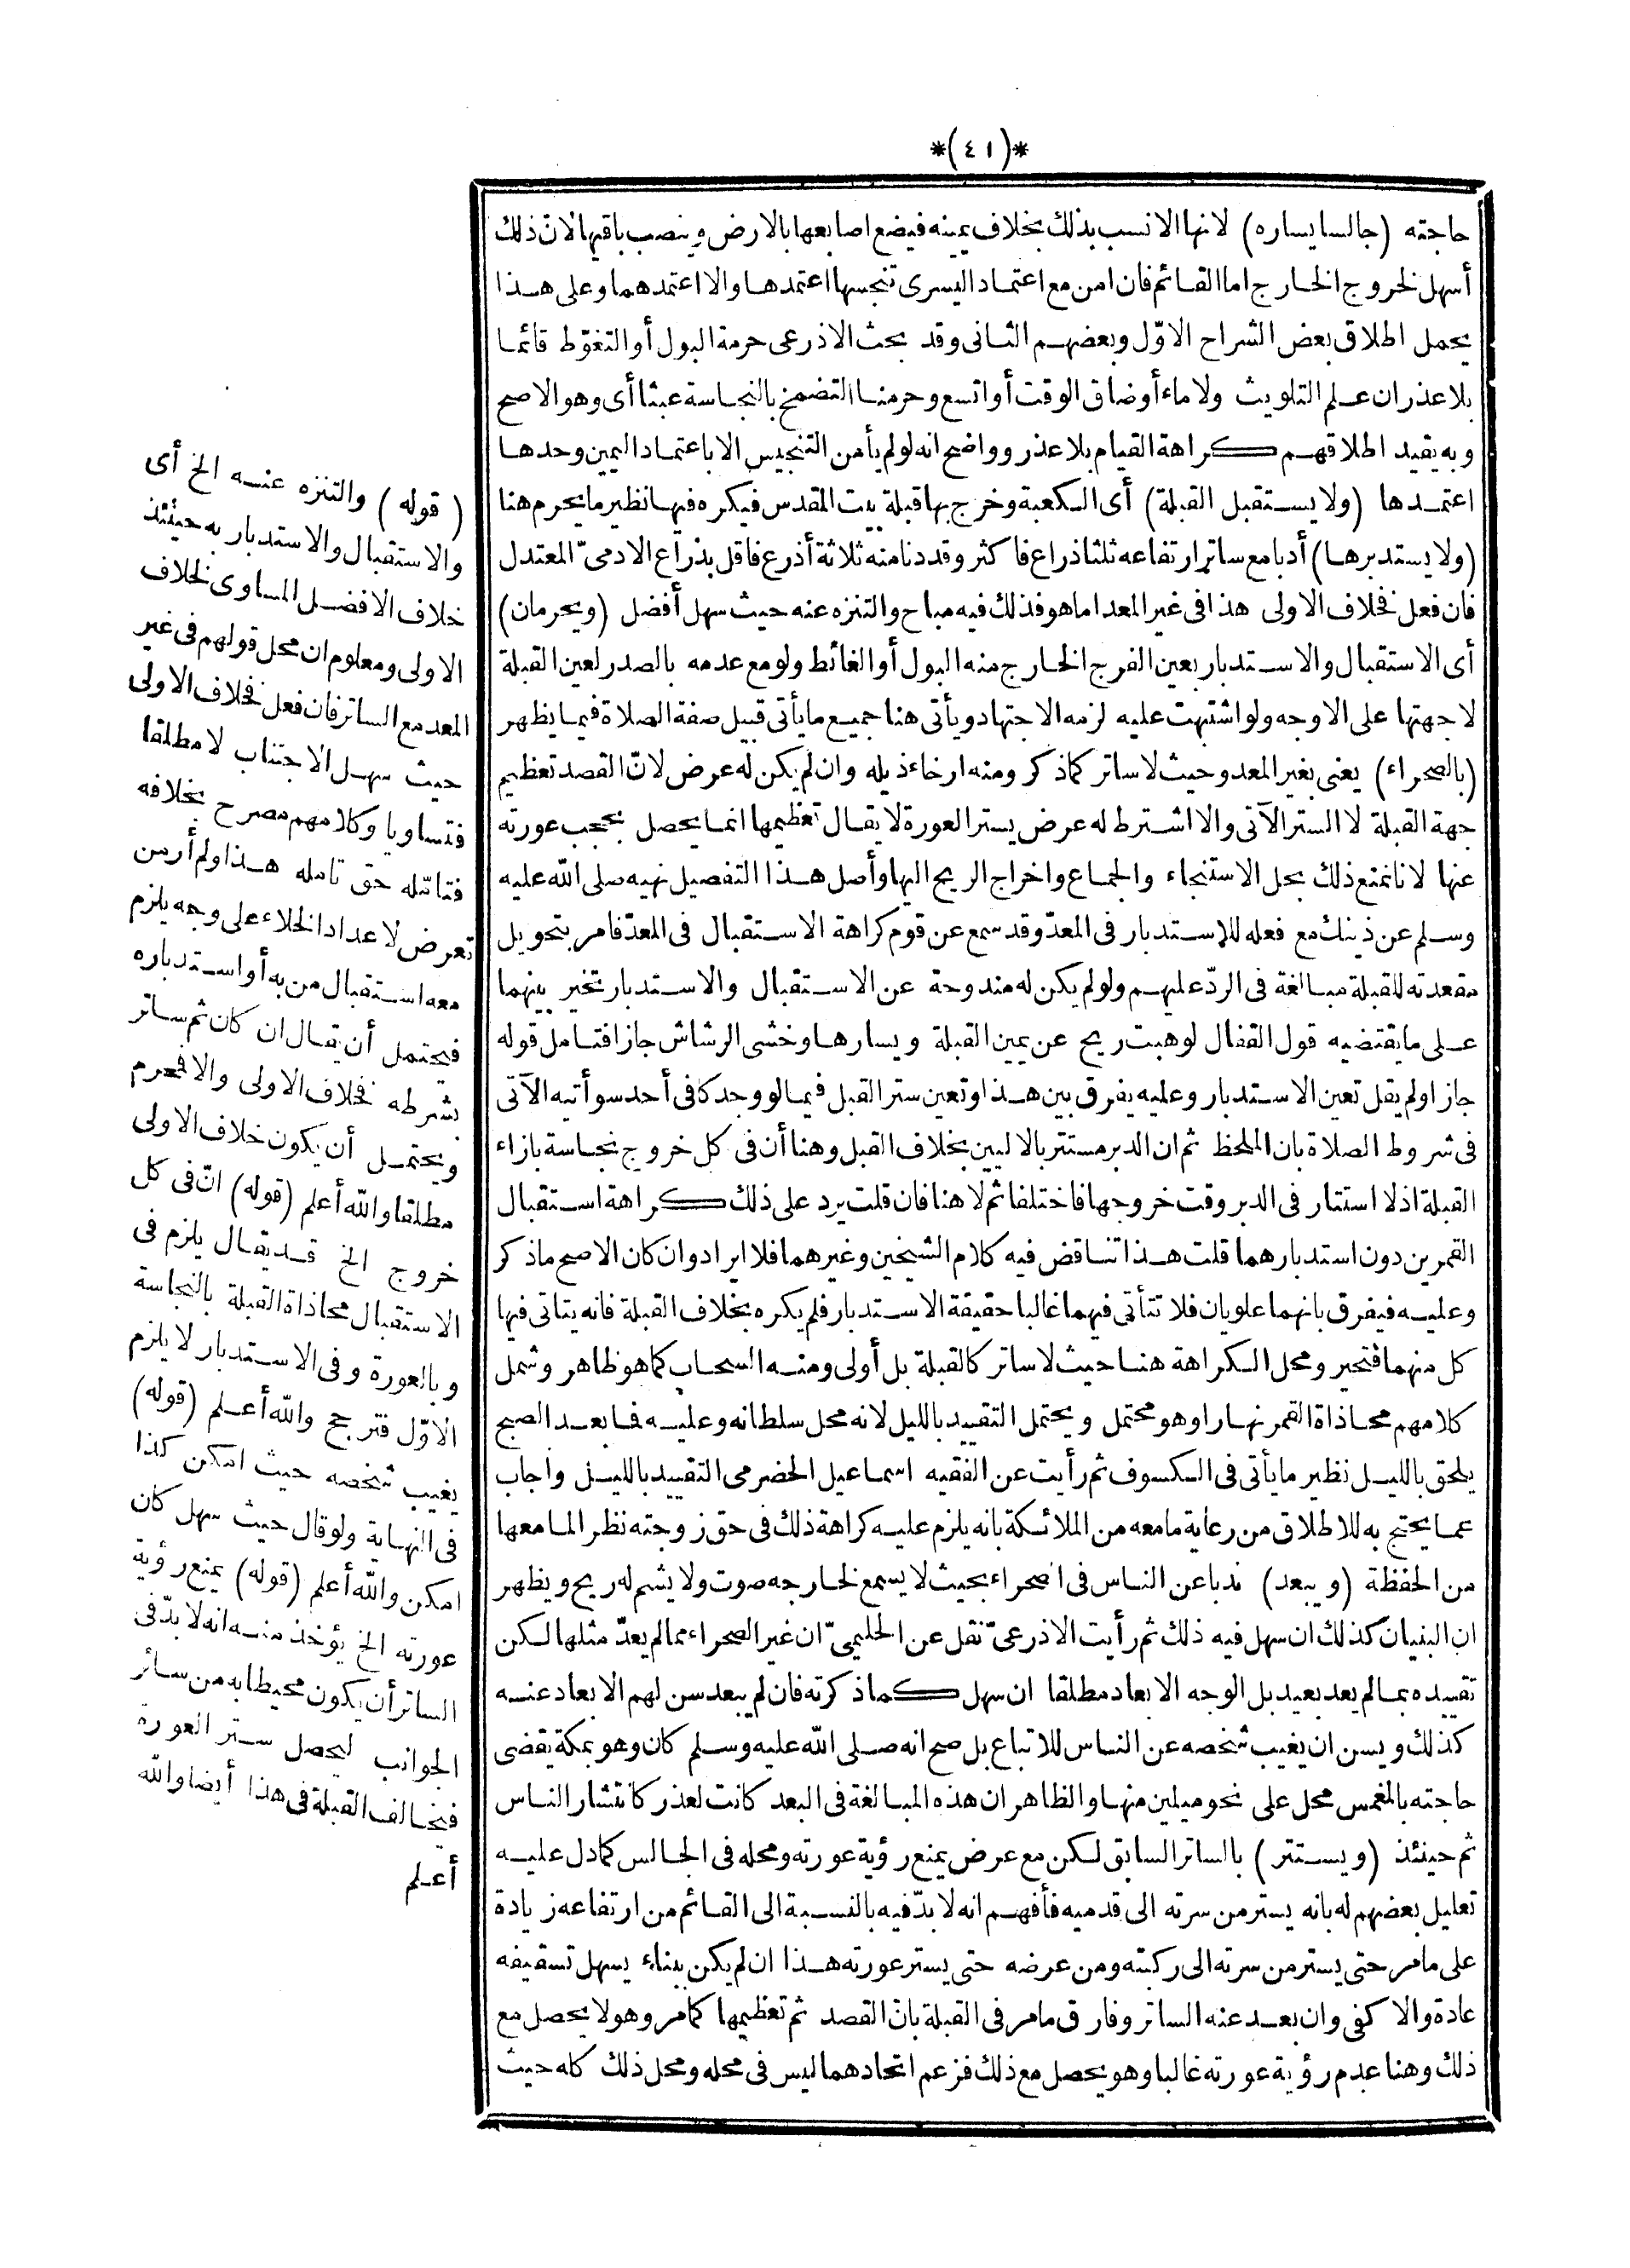 *(٤١)*
حاجته (جالسا يساره) لانها الانسب بذلك بخلاف يمينه فيضع اصابعها بالارض وينصب باقيها لان ذلك
أسهل لخروج الخارج اما القائم فان امن مع اعتماد اليسرى تنجسها اعتمدها والا اعتمدهما وعلى هذا
يحمل اطلاق بعض الشراح الاوّل وبعضهم الثانى وقد بحث الاذرعى حرمة البول أو التغوّط قائما
بلا عذر ان علم التلويث ولا ماء أوضاق الوقت أو اتسع وحرمنا التضمخ بالنجاسة عبثا أى وهو الاصح
وبه يقيد اطلاقهم كراهة القيام بلا عذر وواضح انه لو لم يأمن التنجيس الا باعتماد اليمين وحدها
اعتمدها (ولا يستقبل القبلة) أى الكعبة وخرج بها قبلة بيت المقدس فيكره فيها نظير ما يحرم هنا
(ولا يستدبرها) أدبا مع ساتر ارتفاعه ثلثا ذراع فاكثر وقد دنا منه ثلاثة أذرع فاقل بذراع الادمىّ المعتدل
فان فعل فخلاف الاولى هذا فى غير المعد اما هو فذلك فيه مباح والتنزه عنه حيث سهل أفضل (ويحرمان)
أى الاستقبال والاستدبار بعين الفرج الخارج منه البول أو الغائط ولو مع عدمه بالصدر لعين القبلة
لا جهتها على الاوجه ولو اشتبهت عليه لزمه الاجتهاد ويأتى هنا جميع ما يأتى قبيل صفة الصلاة فيما يظهر
(بالصحراء) يعنى بغير المعد وحيث لا ساتر كما ذكر ومنه ارخاء ذيله وان لم يكن له عرض لانّ القصد تعظيم
جهة القبلة لا الستر الآتى والا اشترط له عرض يستر العورة لا يقال تعظيمها انما يحصل بحجب عورته
عنها لانا نمنع ذلك بحل الاستنجاء والجماع واخراج الريح اليها وأصل هذا التفصيل نهيه صلى الله عليه
وسلم عن ذينك مع فعله للاستدبار فى المعدّ وقد سمع عن قوم كراهة الاستقبال فى المعدّ فامر بتحويل
مقعدته للقبلة مبالغة فى الردّ عليهم ولو لم يكن له مندوحة عن الاستقبال والاستدبار تخير بينهما
على ما يقتضيه قول القفال لو هبت ريح عن يمين القبلة ويسارها وخشى الرشاش جازا فتامل قوله
جازا ولم يقل تعين الاستدبار وعليه يفرق بين هذا وتعين ستر القبل فيما لو وجد كافى أحد سوأتيه الآتى
فى شروط الصلاة بان الملحظ ثم ان الدبر مستتر بالاليين بخلاف القبل وهنا أن فى كل خروج نجاسة بازاء
القبلة اذ لا استتار فى الدبر وقت خروجها فاختلفا ثم لا هنا فان قلت يرد على ذلك كراهة استقبال
القمرين دون استدبارهما قلت هذا تناقض فيه كلام الشيخين وغيرهما فلا ايراد وان كان الاصح ما ذكر
وعليه فيفرق بانهما علويان فلا تتأتى فيهما غالبا حقيقة الاستدبار فلم يكره بخلاف القبلة فانه يتاتى فيها
كل منهما فتخير ومحل الكراهة هنا حيث لا ساتر كالقبلة بل أولى ومنه السحاب كما هو ظاهر وشمل
كلامهم محاذاة القمر نهارا وهو محتمل ويحتمل التقييد بالليل لانه محل سلطانه وعليه فما بعد الصبح
يلحق بالليل نظير ما يأتى فى الكسوف ثم رأيت عن الفقيه اسماعيل الحضرمى التقييد بالليل واجاب
عما يحتج به للاطلاق من رعاية ما معه من الملائكة بانه يلزم عليه كراهة ذلك فى حق زوجته نظرا لما معها
من الحفظة (ويبعد) ندبا عن الناس فى الصحراء بحيث لا يسمع لخارجه صوت ولا يشم له ريح ويظهر
ان البنيان كذلك ان سهل فيه ذلك ثم رأيت الاذرعىّ نقل عن الحليمىّ ان غير الصحراء مما لم يعدّ مثلها لكن
تقييده بما لم يعد بعيد بل الوجه الابعاد مطلقا ان سهل كما ذكرته فان لم يبعد سن لهم الابعاد عنه
كذلك ويسن ان يغيب شخصه عن الناس للاتباع بل صح انه صلى الله عليه وسلم كان وهو بمكة يقضى
حاجته بالمغمس محل على نحو ميلين منها والظاهر ان هذه المبالغة فى البعد كانت لعذر كانتشار الناس
ثم حينئذ (ويستتر) بالساتر السابق لكن مع عرض يمنع رؤية عورته ومحله فى الجالس كما دل عليه
تعليل بعضهم له بانه يستر من سرته الى قدميه فأفهم انه لا بدّ فيه بالنسبة الى القائم من ارتفاعه زيادة
على ما مر حتى يستر من سرته الى ركبته ومن عرضه حتى يستر عورته هذا ان لم يكن ببناء يسهل تسقيفه
عادة والا كفى وان بعد عنه الساتر وفارق ما مر فى القبلة بانّ القصد ثم تعظيمها كما مر وهو لا يحصل مع
ذلك وهنا عدم رؤية عورته غالبا وهو يحصل مع ذلك فزعم اتحادهما ليس فى محله ومحل ذلك كله حيث
(قوله) والتنزه عنه الخ أى
والاستقبال والاستدبار به حينئذ
خلاف الافضل المساوى لخلاف
الاولى ومعلوم ان محل قولهم فى غير
المعد مع الساتر فان فعل فخلاف الاولى
حيث سهل الاجتناب لا مطلقا
فتساويا وكلامهم مصرح بخلافه
فتامّله حق تامله هذا ولم أر من
تعرض لاعداد الخلاء على وجه يلزم
معه استقبال من به أو استدباره
فيحتمل أن يقال ان كان ثم ساتر
بشرطه فخلاف الاولى والا فحرم
ويحتمل أن يكون خلاف الاولى
مطلقا والله أعلم (قوله) انّ فى كل
خروج الخ قد يقال يلزم فى
الاستقبال محاذاة القبلة بالنجاسة
وبالعورة وفى الاستدبار لا يلزم
الاوّل فترجح والله أعلم (قوله)
يغيب شخصه حيث امكن كذا
فى النهاية ولو قال حيث سهل كان
امكن والله أعلم (قوله) يمنع رؤية
عورته الخ يؤخذ منه انه لا بدّ فى
الساتر أن يكون محيطا به من سائر
الجوانب ليحصل ستر العورة
فيخالف القبلة فى هذا أيضا والله
أعلم